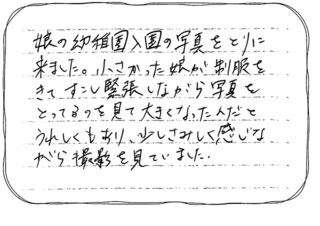 娘の幼稚園入園の写真をとりに
来ました。小さかった娘が制服を
きてすこし緊張しながら写真を
とってるのを見て大きくなったんだと
うれしくもあり、少しさみしく感じな
がら撮影を見ていました.